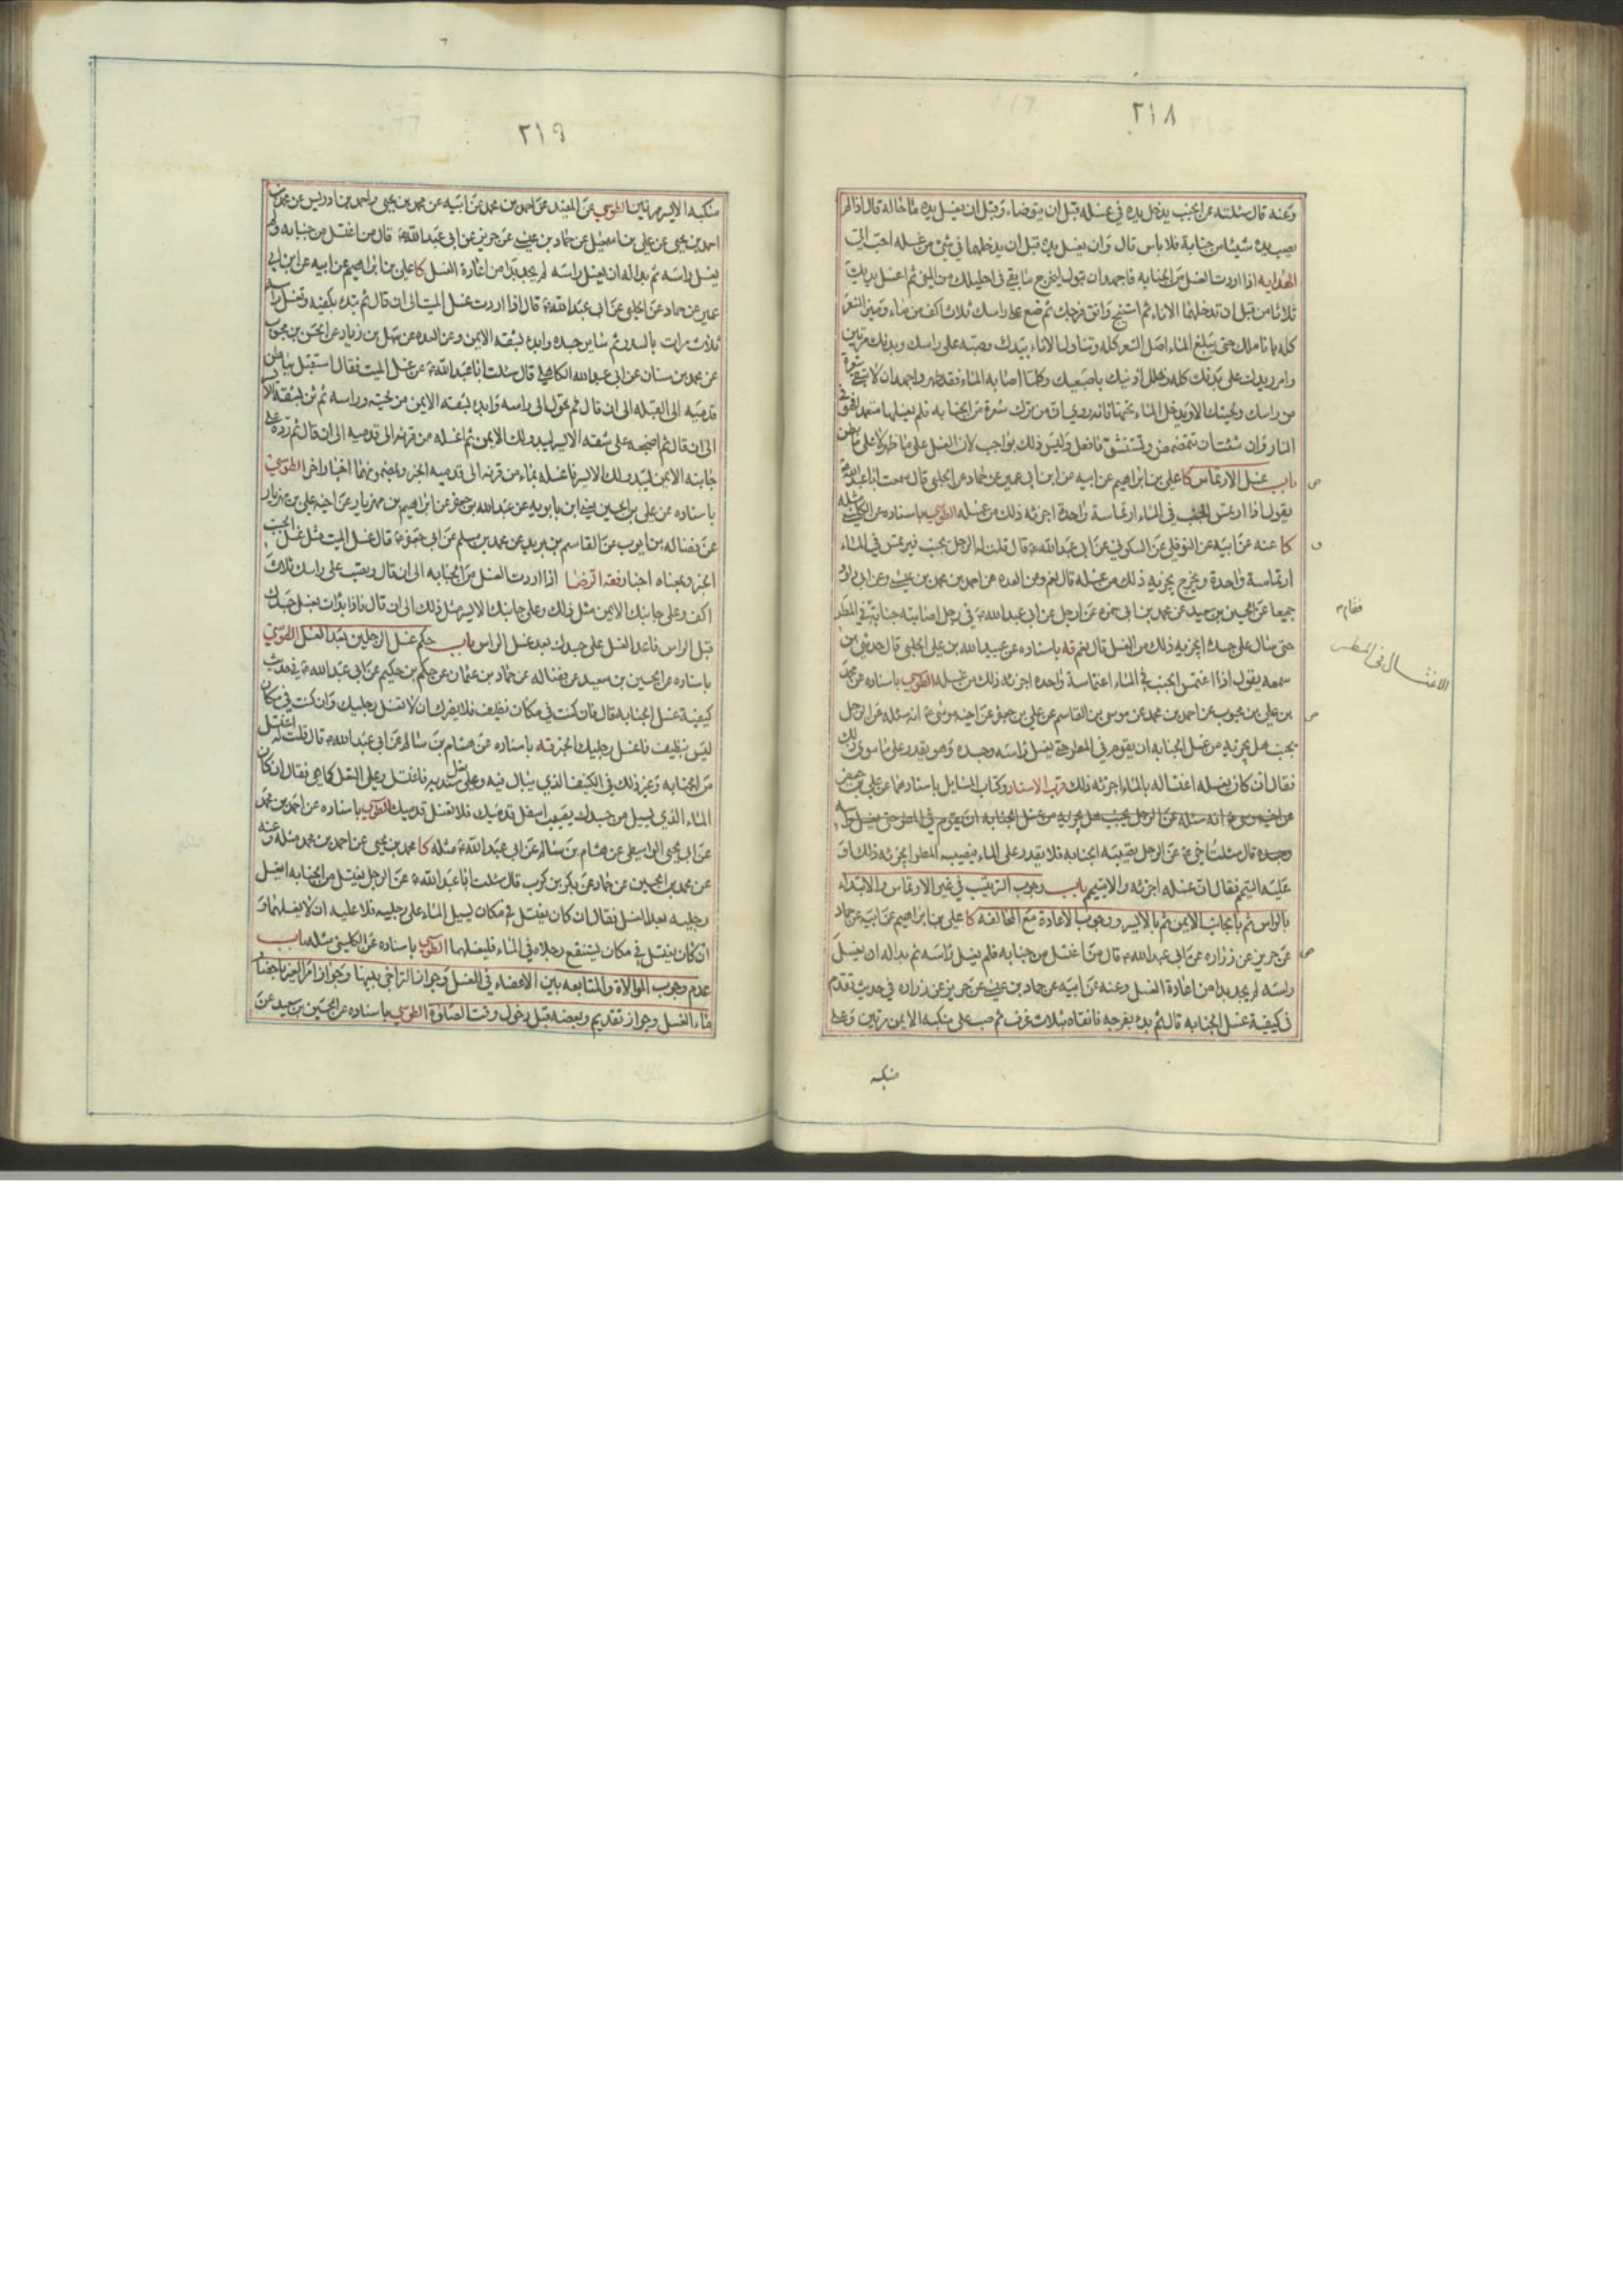 ٢١٨
وعنه قال سئلته عن الجنب يدخل يده في غسله قبل ان يتوضاء وقبل ان يغسل يده ما حاله قال اذا لم
يصب يده شيئا من جنابة فلا باس قال وان يغسل يده قبل ان يدخلها في شئ من غسله احب الي
الهدايه اذا اردت الغسل من الجنابه فاجهد ان تبول ليخرج ما بقي في احليلك من المني ثم اغسل يديك
ثلاثا من قبل ان تدخلهما الاناء ثم استنج وانق فرجك ثم ضع على راسك ثلاث اكف من ماء وميز الشعر
كله باناملك حتى يبلغ الماء اصل الشعر كله وتناول الاناء بيدك وصبه على راسك وبدنك مرتين
وامرر يدك على بدنك كله وخلل اذنيك باصبعيك وكلما اصابه الماء فقد طهر واجهد ان لا تبقى شعرة
من راسك ولحيتك الا ويدخل الماء تحتها فانه روي ان من ترك شعرة من الجنابه فلم يغسلها متعمدا فهو في
النار وان شئت ان تتمضمض وتستنشق فافعل وليس ذلك بواجب لان الغسل على ما ظهر لا على ما بطن
باب غسل الارتماس كا علي بن ابراهيم عن ابيه عن ابن ابي عمير عن حماد عن الحلبي قال سمعت ابا عبد الله ع
يقول اذا ارتمس الجنب في الماء ارتماسة واحدة اجزئه ذلك من غسله الطوسي باسناده عن الكليني مثله
كا عنه عن ابيه عن النوفلي عن السكوني عن ابي عبد الله ع قال قلت له الرجل يجنب فيرتمس في الماء
ارتماسة واحدة ويخرج يجزيه ذلك من غسله قال نعم وعن العده عن احمد بن محمد بن عيسى وعن ابي داود
جميعا عن الحسين بن سعيد عن محمد بن ابي حمزه عن رجل عن ابي عبد الله ع في رجل اصابته جنابة في المطر
حتى سال على جسده ايجزيه ذلك من الغسل قال نعم قه باسناده عن عبيد الله بن علي الحلبي قال حدثني من
سمعه يقول اذا اغتمس الجنب في الماء اغتماسة واحده اجزئه ذلك من غسله الطوسي باسناده عن محمد
بن علي بن محبوب عن احمد بن محمد عن موسى بن القاسم عن علي بن جعفر عن اخيه موسى ع انه سئله عن الرجل
يجنب هل يجزيه من غسل الجنابه ان يقوم في المطر حتى يغسل راسه وجسده وهو يقدر على ما سوى ذلك
فقال ان كان يغسله اغتساله بالماء اجزئه ذلك قرب الاسناد وكتاب المسايل باسنادهما عن علي بن جعفر
عن اخيه موسى ع انه سئله عن الرجل يجنب هل يجزيه من غسل الجنابه ان يقوم في المطر حتى يغسل راسه
وجسده قال سئلت اخي ع عن الرجل تصيبه الجنابه فلا يقدر على الماء فيصيبه المطر ايجزئه ذلك او
عليه التيمم فقال ان غسله اجزئه والا تيمم باب وجوب الترتيب في غير الارتماس والابتداء
بالراس ثم بالجانب الايمن ثم بالايسر ووجوب الاعادة مع المخالفه كا علي بن ابراهيم عن ابيه عن حماد
عن حريز عن زراره عن ابي عبد الله ع قال من اغتسل من جنابه فلم يغسل راسه ثم بدا له ان يغسل
راسه لم يجد بدا من اعادة الغسل وعنه عن ابيه عن حماد بن عيسى عن حريز عن زراره في حديث تقدم
في كيفية غسل الجنابه قال ثم بدء بفرجه فانقاه بثلاث غرف ثم صب على منكبه الايمن مرتين وعلى
منكبه
الاغتسال في المطر
٢١٩
منكبه الايسر مرتين الطوسي عن المفيد عن احمد بن محمد عن ابيه عن محمد بن يحيى واحمد بن ادريس عن محمد بن
احمد بن يحيى عن علي بن اسمعيل عن حماد بن عيسى عن حريز عن ابي عبد الله ع قال من اغتسل من جنابه ولم
يغسل راسه ثم بدا له ان يغسل راسه لم يجد بدا من اعادة الغسل كا علي بن ابراهيم عن ابيه عن ابن ابي
عمير عن حماد عن الحلبي عن ابي عبد الله ع قال اذا اردت غسل الميت الى ان قال ثم تبدء بكفيه وتغسل راسه
ثلاث مرات بالسدر ثم ساير جسده وابدء بشقه الايمن وعن العده عن سهل بن زياد عن الحسن بن محبوب
عن محمد بن سنان عن ابي عبد الله الكاهلي قال سئلت ابا عبد الله ع عن غسل الميت فقال استقبل بباطن
قدميه الى القبله الى ان قال ثم تحول الى راسه وابدء بشقه الايمن من لحيته وراسه ثم ثن بشقه الايسر
الى ان قال ثم اضجعه على شقه الايسر ليبدو لك الايمن ثم اغسله من قرنه الى قدميه الى ان قال ثم رده على
جانبه الايمن ليبدو لك الايسر فاغسله بماء من قرنه الى قدميه الخبر وبمضمونهما اخبار اخر الطوسي
باسناده عن علي بن الحسين يعني ابن بابويه عن عبد الله بن جعفر عن ابراهيم بن مهزيار عن اخيه علي بن مهزيار
عن فضاله بن ايوب عن القاسم بن بريد عن محمد بن مسلم عن ابي جعفر ع قال غسل الميت مثل غسل الجنب
الخبر وبمعناه اخبار فقه الرضا اذا اردت الغسل من الجنابه الى ان قال وتصب على راسك ثلاث
اكف وعلى جانبك الايمن مثل ذلك وعلى جانبك الايسر مثل ذلك الى ان قال فاذا بدات بغسل جسدك
قبل الراس فاعد الغسل على جسدك بعد غسل الراس باب حكم غسل الرجلين بعد الغسل الطوسي
باسناده عن الحسين بن سعيد عن فضاله عن حماد بن عثمان عن حكم بن حكيم عن ابي عبد الله ع في حديث
كيفية غسل الجنابه قال فان كنت في مكان نظيف فلا يضرك ان لا تغسل رجليك وان كنت في مكان
ليس بنظيف فاغسل رجليك الخبر قه باسناده عن هشام بن سالم عن ابي عبد الله ع قال قلت له اغتسل
من الجنابه وغير ذلك في الكنيف الذي يبال فيه وعلي نعل سنديه فاغتسل وعلي النعل كما هي فقال ان كان
الماء الذي يسيل من جسدك يصيب اسفل قدميك فلا تغسل قدميك الطوسي باسناده عن احمد بن محمد
عن ابي يحيى الواسطي عن هشام بن سالم عن ابي عبد الله ع مثله كا محمد بن يحيى عن احمد بن محمد مثله وعنه
عن محمد بن الحسين عن حماد عن بكر بن كرب قال سئلت ابا عبد الله ع عن الرجل يغتسل من الجنابه ايغسل
رجليه بعد الغسل فقال ان كان يغتسل في مكان يسيل الماء على رجليه فلا عليه ان لا يغسلهما و
ان كان يغتسل في مكان يستنقع رجلاه في الماء فليغسلهما الطوسي باسناده عن الكليني مثله باب
عدم وجوب الموالاة والمتابعه بين الاعضاء في الغسل وجواز التراخي بينها وجواز امر الغير باحضار
ماء الغسل وجواز تقديم وبعضه قبل دخول وقت الصلوة الطوسي باسناده عن الحسين بن سعيد عن